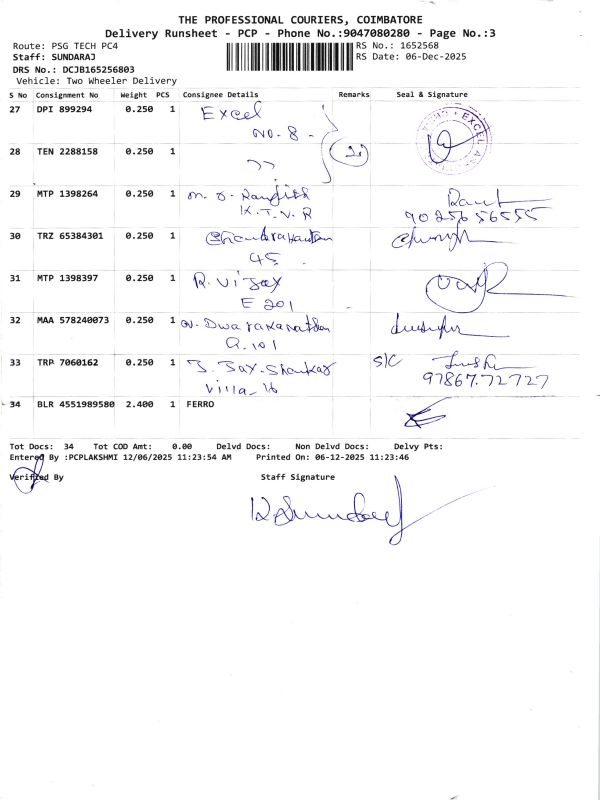 THE PROFESSIONAL COURIERS, COIMBATORE
Delivery Runsheet - PCP - Phone No.:9047080280 - Page No.:3
Route: PSG TECH PC4
RS No.: 1652568
Staff: SUNDARAJ
RS Date: 06-Dec-2025
DRS No.: DCJB165256803
Vehicle: Two Wheeler Delivery
S No Consignment No Weight PCS Consignee Details Remarks Seal & Signature
27 DPI 899294 0.250 1 Excel
No. 8 -
EXCEL
28 TEN 2288158 0.250 1 ,, 2
29 MTP 1398264 0.250 1
K.T.V.R
90256 56555
30 TRZ 65384301 0.250 1 Chandrakanthan
45
31 MTP 1398397 0.250 1 R. Vijay
E 201
32 MAA 578240073 0.250 1 N. Dwarakanathan
Q. 101
33 TRP 7060162 0.250 1 J. Jay. Shankar S/C
Villa - 16 97867.72727
34 BLR 4551989580 2.400 1 FERRO
Tot Docs: 34 Tot COD Amt: 0.00 Delvd Docs: Non Delvd Docs: Delvy Pts:
Entered By :PCPLAKSHMI 12/06/2025 11:23:54 AM Printed On: 06-12-2025 11:23:46
Verified By Staff Signature